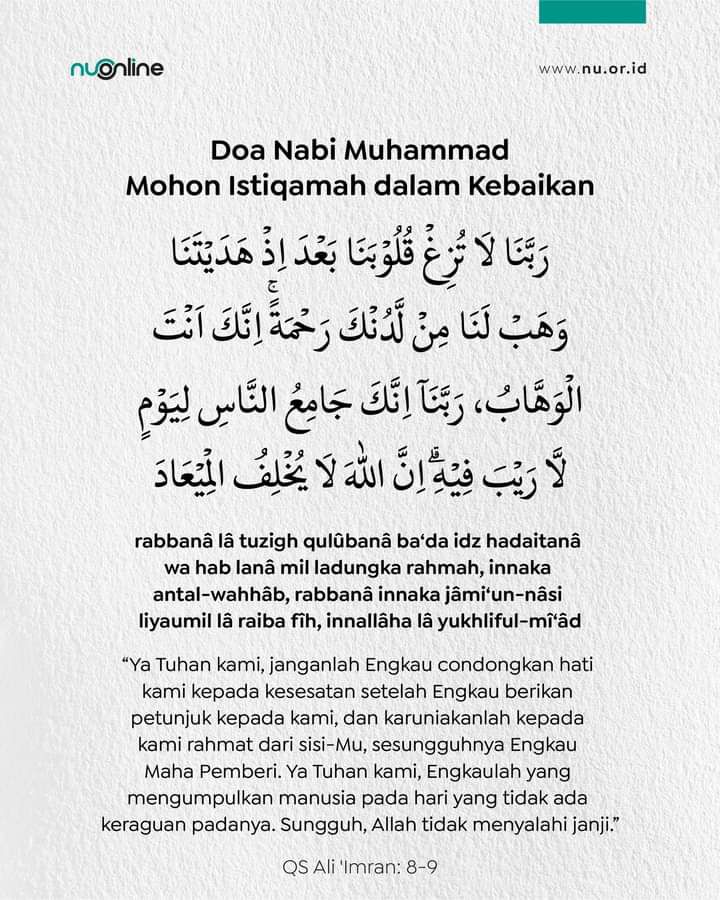 nuonline
www.nu.or.id
Doa Nabi Muhammad
Mohon Istiqamah dalam Kebaikan
رَبَّنَا لَا تُزِغْ قُلُوْبَنَا بَعْدَ اِذْ هَدَيْتَنَا
وَهَبْ لَنَا مِنْ لَّدُنْكَ رَحْمَةًۚ اِنَّكَ اَنْتَ
الْوَهَّابُ، رَبَّنَآ اِنَّكَ جَامِعُ النَّاسِ لِيَوْمٍ
لَّا رَيْبَ فِيْهِۗ اِنَّ اللّٰهَ لَا يُخْلِفُ الْمِيْعَادَ
rabbanâ lâ tuzigh qulûbanâ ba‘da idz hadaitanâ
wa hab lanâ mil ladungka rahmah, innaka
antal-wahhâb, rabbanâ innaka jâmi‘un-nâsi
liyaumil lâ raiba fîh, innallâha lâ yukhliful-mî‘âd
“Ya Tuhan kami, janganlah Engkau condongkan hati
kami kepada kesesatan setelah Engkau berikan
petunjuk kepada kami, dan karuniakanlah kepada
kami rahmat dari sisi-Mu, sesungguhnya Engkau
Maha Pemberi. Ya Tuhan kami, Engkaulah yang
mengumpulkan manusia pada hari yang tidak ada
keraguan padanya. Sungguh, Allah tidak menyalahi janji.”
QS Ali 'Imran: 8-9